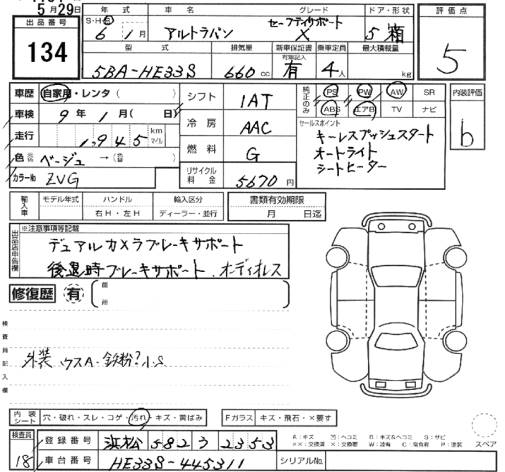 5月29日
出品番号
134
年式 車名 グレード ドア・形状
S・H・R 6年 1月 アルトラパン セーフティサポート X 5 箱
型式 排気量 新車保証書 乗車定員 最大積載量
5BA-HE33S 660cc 有 4人 kg
評価点
5
車歴 自家用・レンタ( )
車検 9年1月( 日)
走行 1,945 km マイル
色 ベージュ →(色替)
カラーNo ZVG
シフト 1AT
冷房 AAC
燃料 G
リサイクル料金 5670円
純正のみ PS PW AW SR
ABS エアB TV ナビ
セールスポイント
キーレスプッシュスタート
オートライト
シートヒーター
内装評価
b
輸入車 モデル年式 ハンドル 輸入区分
右H・左H ディーラー・並行
書類有効期限
月 日迄
出品店申告欄
※注意事項等記載
デュアルカメラブレーキサポート
後退時ブレーキサポート、オーディオレス
修復歴 有 箇所
検査員記入欄
外装 ウスA・鉄粉?小S
内装シート 穴・破れ・スレ・コゲ・汚れ・キズ・黄ばみ
Fガラス キズ・飛石・×要す
検査員
18
登録番号 浜松 582 ヌ 2353
車台番号 HE33S-445311
シリアルNo.
A:キズ U:ヘコミ B:キズ&ヘコミ S:サビ
XX:交換済 X:交換要 W:波有 C:腐食有 P:塗装
スペア